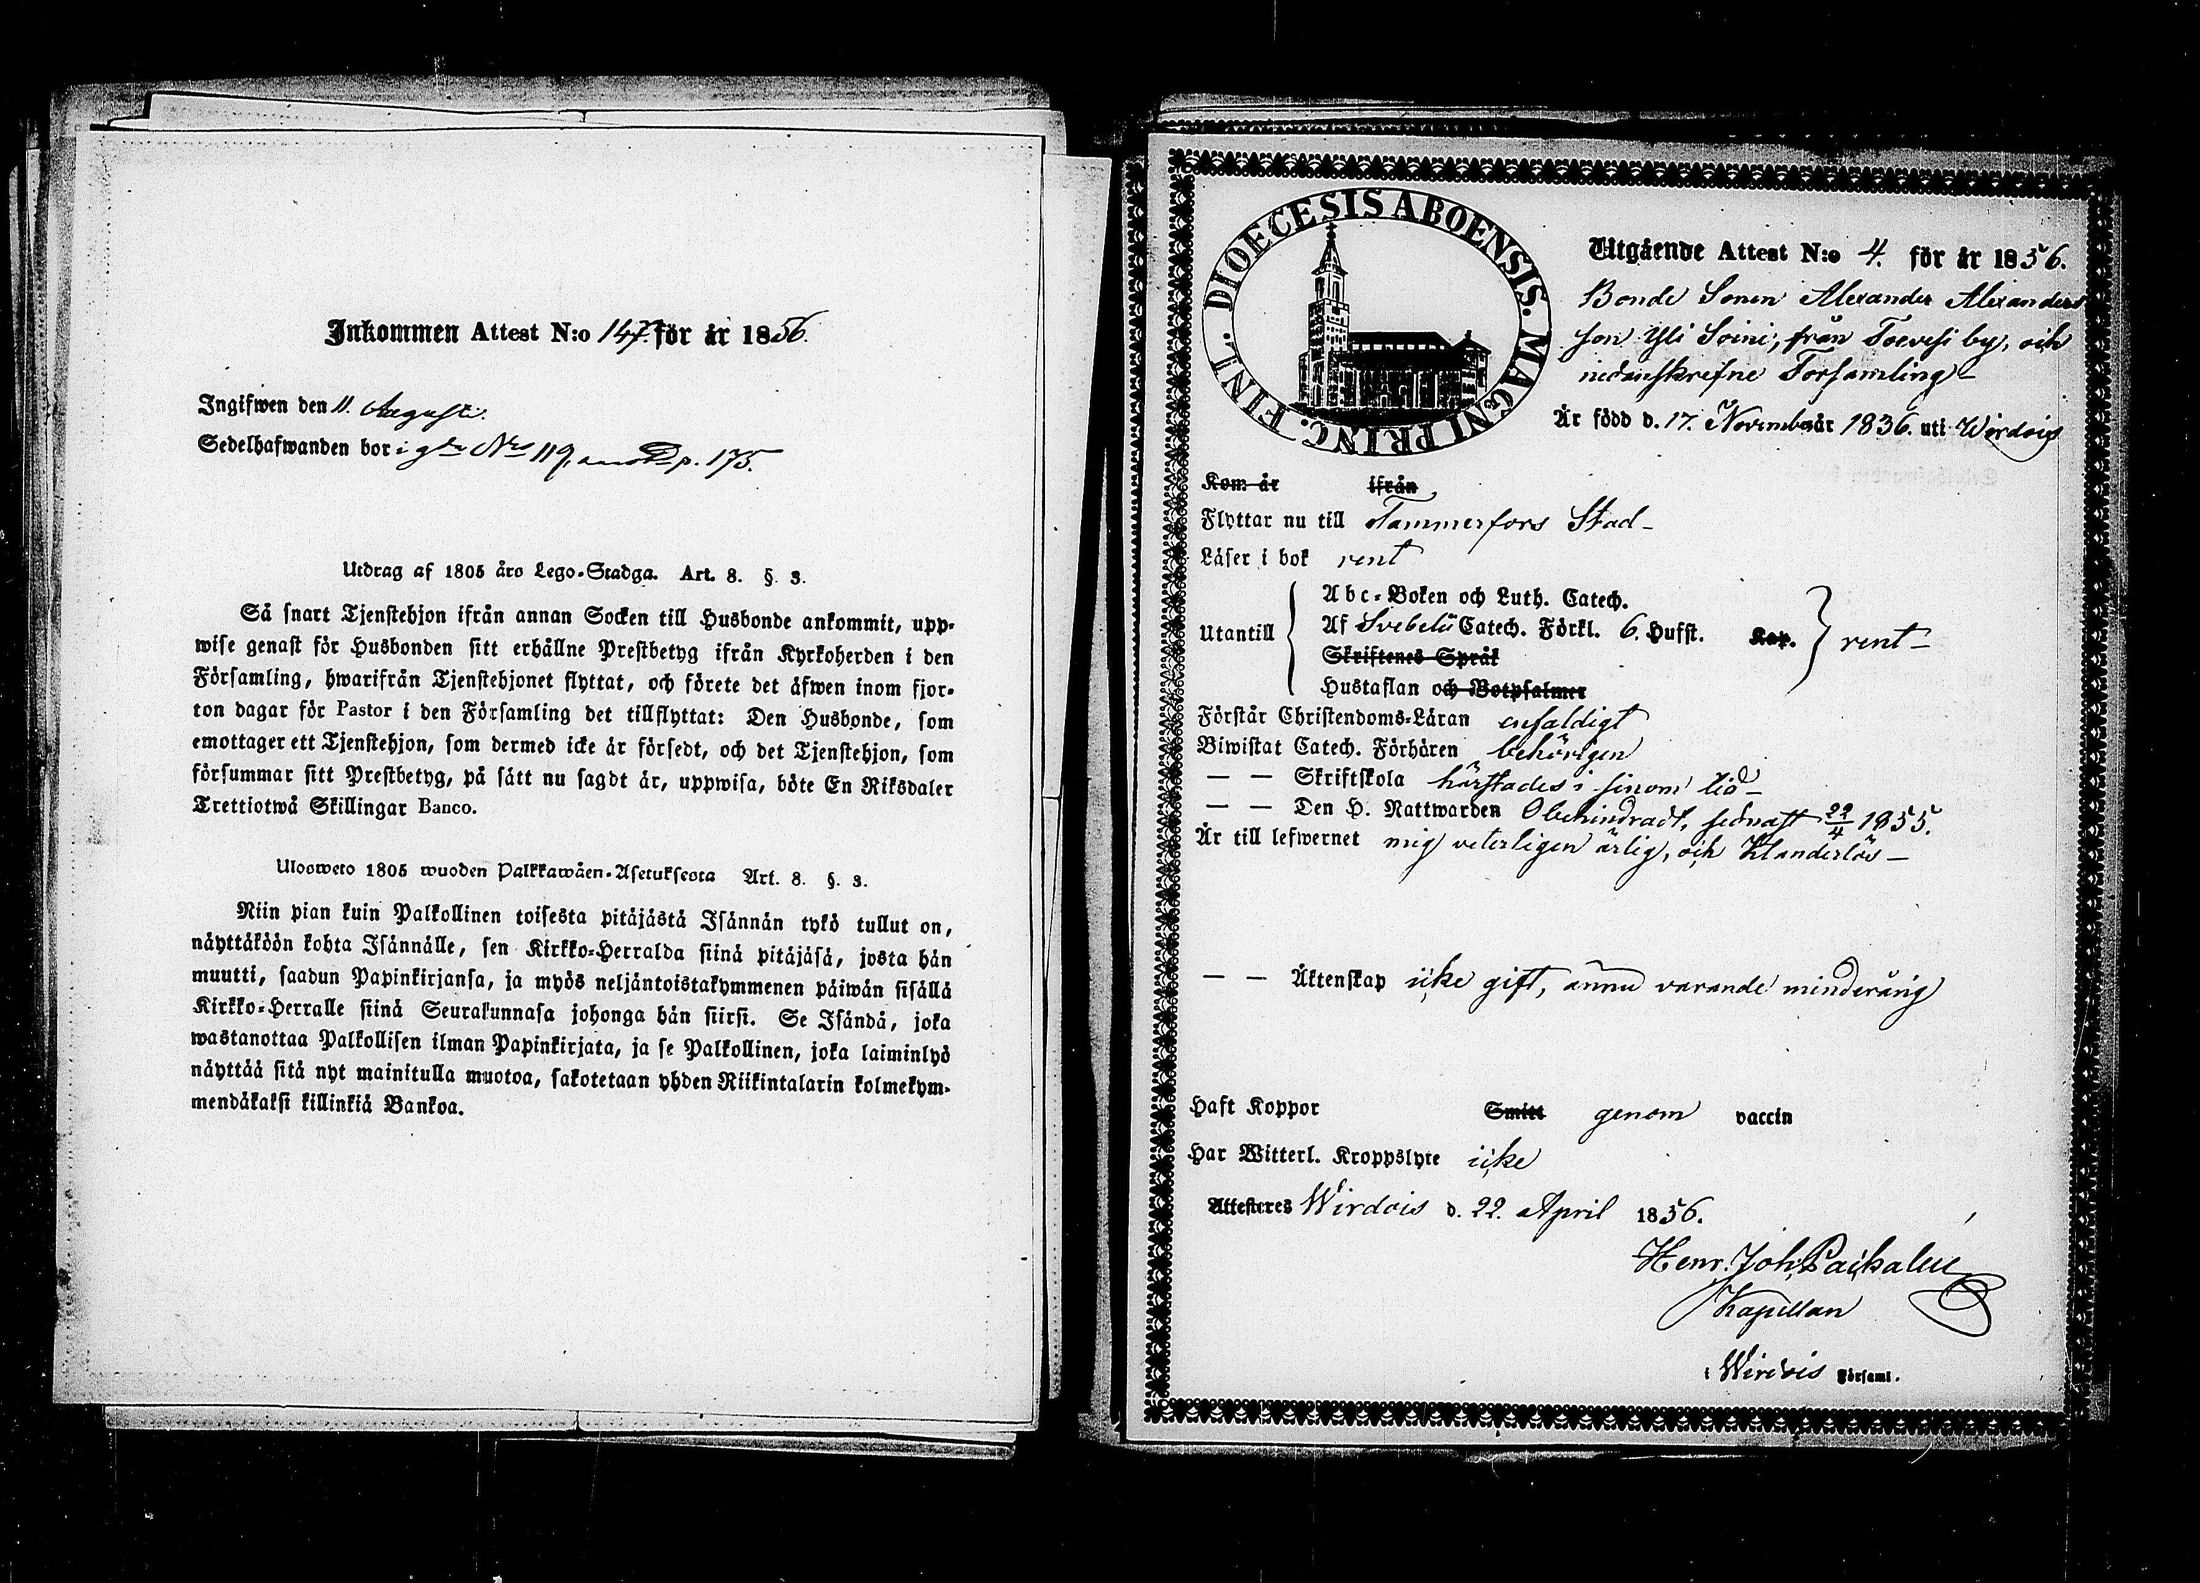 Inkommen Attest N:o 147. för år 1856.
Ingifwen den 11. Augusti.
Sedelhafwanden bor i gdn No 119, p. 175.
Utdrag af 1805 års Lego-Stadga. Art. 8. §. 3.
Så snart Tjenstehjon ifrån annan Socken till Husbonde ankommit, upp-
wise genast för Husbonden sitt erhållne Prestbetyg ifrån Kyrkoherden i den
Församling, hwarifrån Tjenstehjonet flyttat, och förete det äfwen inom fjor-
ton dagar för Pastor i den Församling det tillflyttat: Den Husbonde, som
emottager ett Tjenstehjon, som dermed icke är försedt, och det Tjenstehjon, som
försummar sitt Prestbetyg, på sätt nu sagdt är, uppwisa, böte En Riksdaler
Trettiotwå Skillingar Banco.
Uloosweto 1805 wuoden Palkkawäen-Asetuksesta Art. 8. §. 3.
Niin pian kuin Palkollinen toisesta pitäjästä Isännän tykö tullut on,
näyttäköön kohta Isännälle, sen Kirkko-Herralda siinä pitäjäsä, josta hän
muutti, saadun Papinkirjansa, ja myös neljäntoistakymmenen päiwän sisällä
Kirkko-Herralle siinä Seurakunnasa johonga hän siirsi. Se Isändä, joka
wastanottaa Palkollisen ilman Papinkirjata, ja se Palkollinen, joka laiminlyö
näyttää sitä nyt mainitulla muotoa, sakotetaan yhden Riikintalarin kolmekym-
mendäkaksi killinkiä Bankoa.
DIOECESIS ABOENSIS. MAGNI PRINC. FINL.
Utgående Attest N:o 4. för år 1856.
Bonde Sonen Alexander Alexanders
son Yli Soini, från Toevesi by, och
nedanskrefne Församling
Är född d. 17. November år 1836. uti Wirdois
Kom år ifrån
Flyttar nu till Tammerfors Stad
Läser i bok rent
Abc-Boken och Luth. Catech.
Utantill Af Svebelii Catech. Förkl. 6. Hufst. Kap. rent
Skriftenes Språk
Hustaflan och Botpsalmer
Förstår Christendoms-Läran enfaldigt
Biwistat Catech. Förhören behörigen
— — Skriftskola härstädes i sinom tid
— — Den H. Nattwarden Obehindradt, sednast 22/4 1855.
Är till lefwernet mig veterligen ärlig, och klanderlös
— — Äktenskap icke gift, ännu varande minderårig
Haft Koppor Smitt genom vaccin
Har Witterl. Kroppslyte icke
Attesteres Wirdois d. 22. April 1856.
Henr. Joh.
Kapellan
i Wirdois Församl.